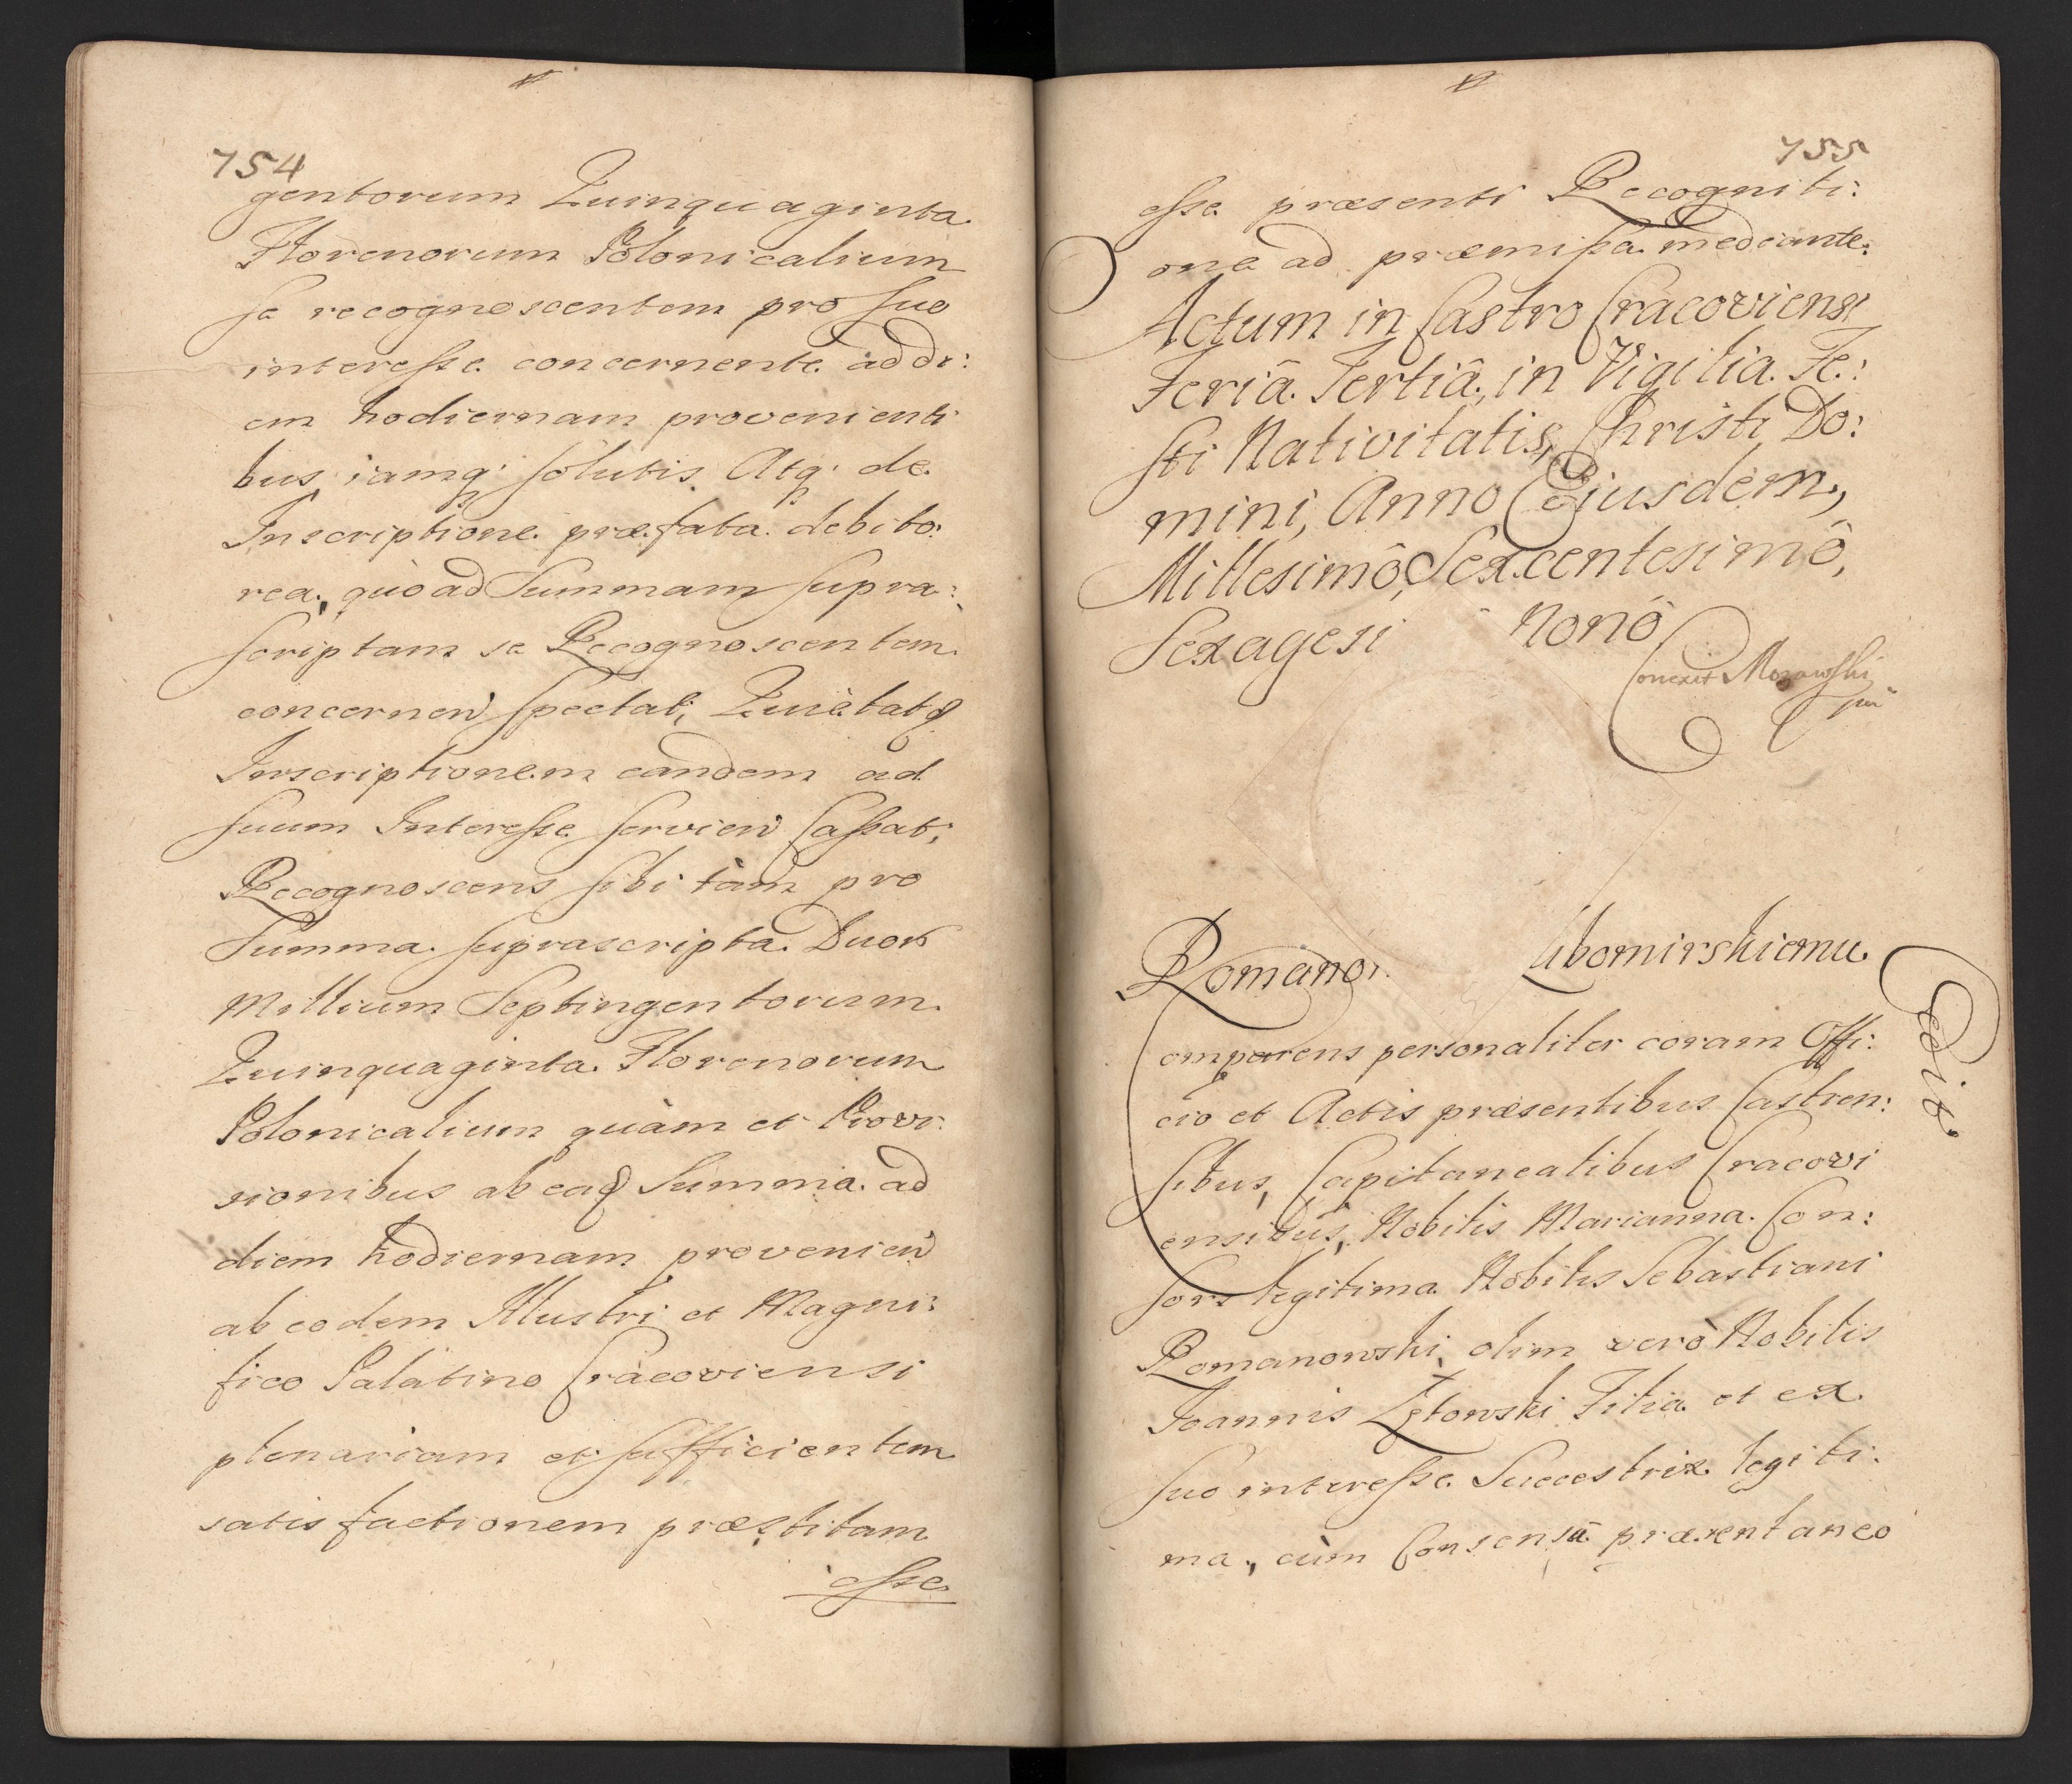 754
gentorum Quinquaginta
Florenorum Polonicalium
se recognoscentem pro suo
interesse concernente ad di:
em hodiernam provenienti
bus iamq; solutis Atq; de
Inscriptione præfata debito:
rea, quòad Summam supra:
scriptam se Recognoscentem
concernen spectat; Quietatq
Inscriptionem eandem ad
suum Interesse servien Cassat;
Recognoscens sibi tàm pro
Summa suprascripta Duor
Millium Septingentorum
Quinquaginta Florenorum
Polonicalium quàm et Provi:
sionibus ab eaq Summa ad
diem hodiernam provenien
ab eodem Illustri et Magni:
fico Palatino Cracoviensi
plenariam et sufficientem
satisfactionem præstitam
esse
755
esse præsenti Recogniti:
one ad præmissa mediante.
Actum in Castro Cracoviensi
Feriâ Tertiâ, in Vigilia Fe:
sti Nativitatis, Christi Do:
mini, Anno Ejusdem,
Millesimô, Sexcentesimô,
Sexagesi Nonô
Conexit Morawski
Romano. Lubomirskiemu
Cedit
omparens personaliter coram Offi:
cio et Actis præsentibus Castren:
sibus, Capitanealibus Cracovi
ensibus, Nobilis Marianna Con:
sors legitima Nobilis Sebastiani
Romanowski, olim verò Nobilis
Joannis Zętowski Filia et ex
suo interesse Succestrix legiti:
ma, cùm Consensu præsentaneo